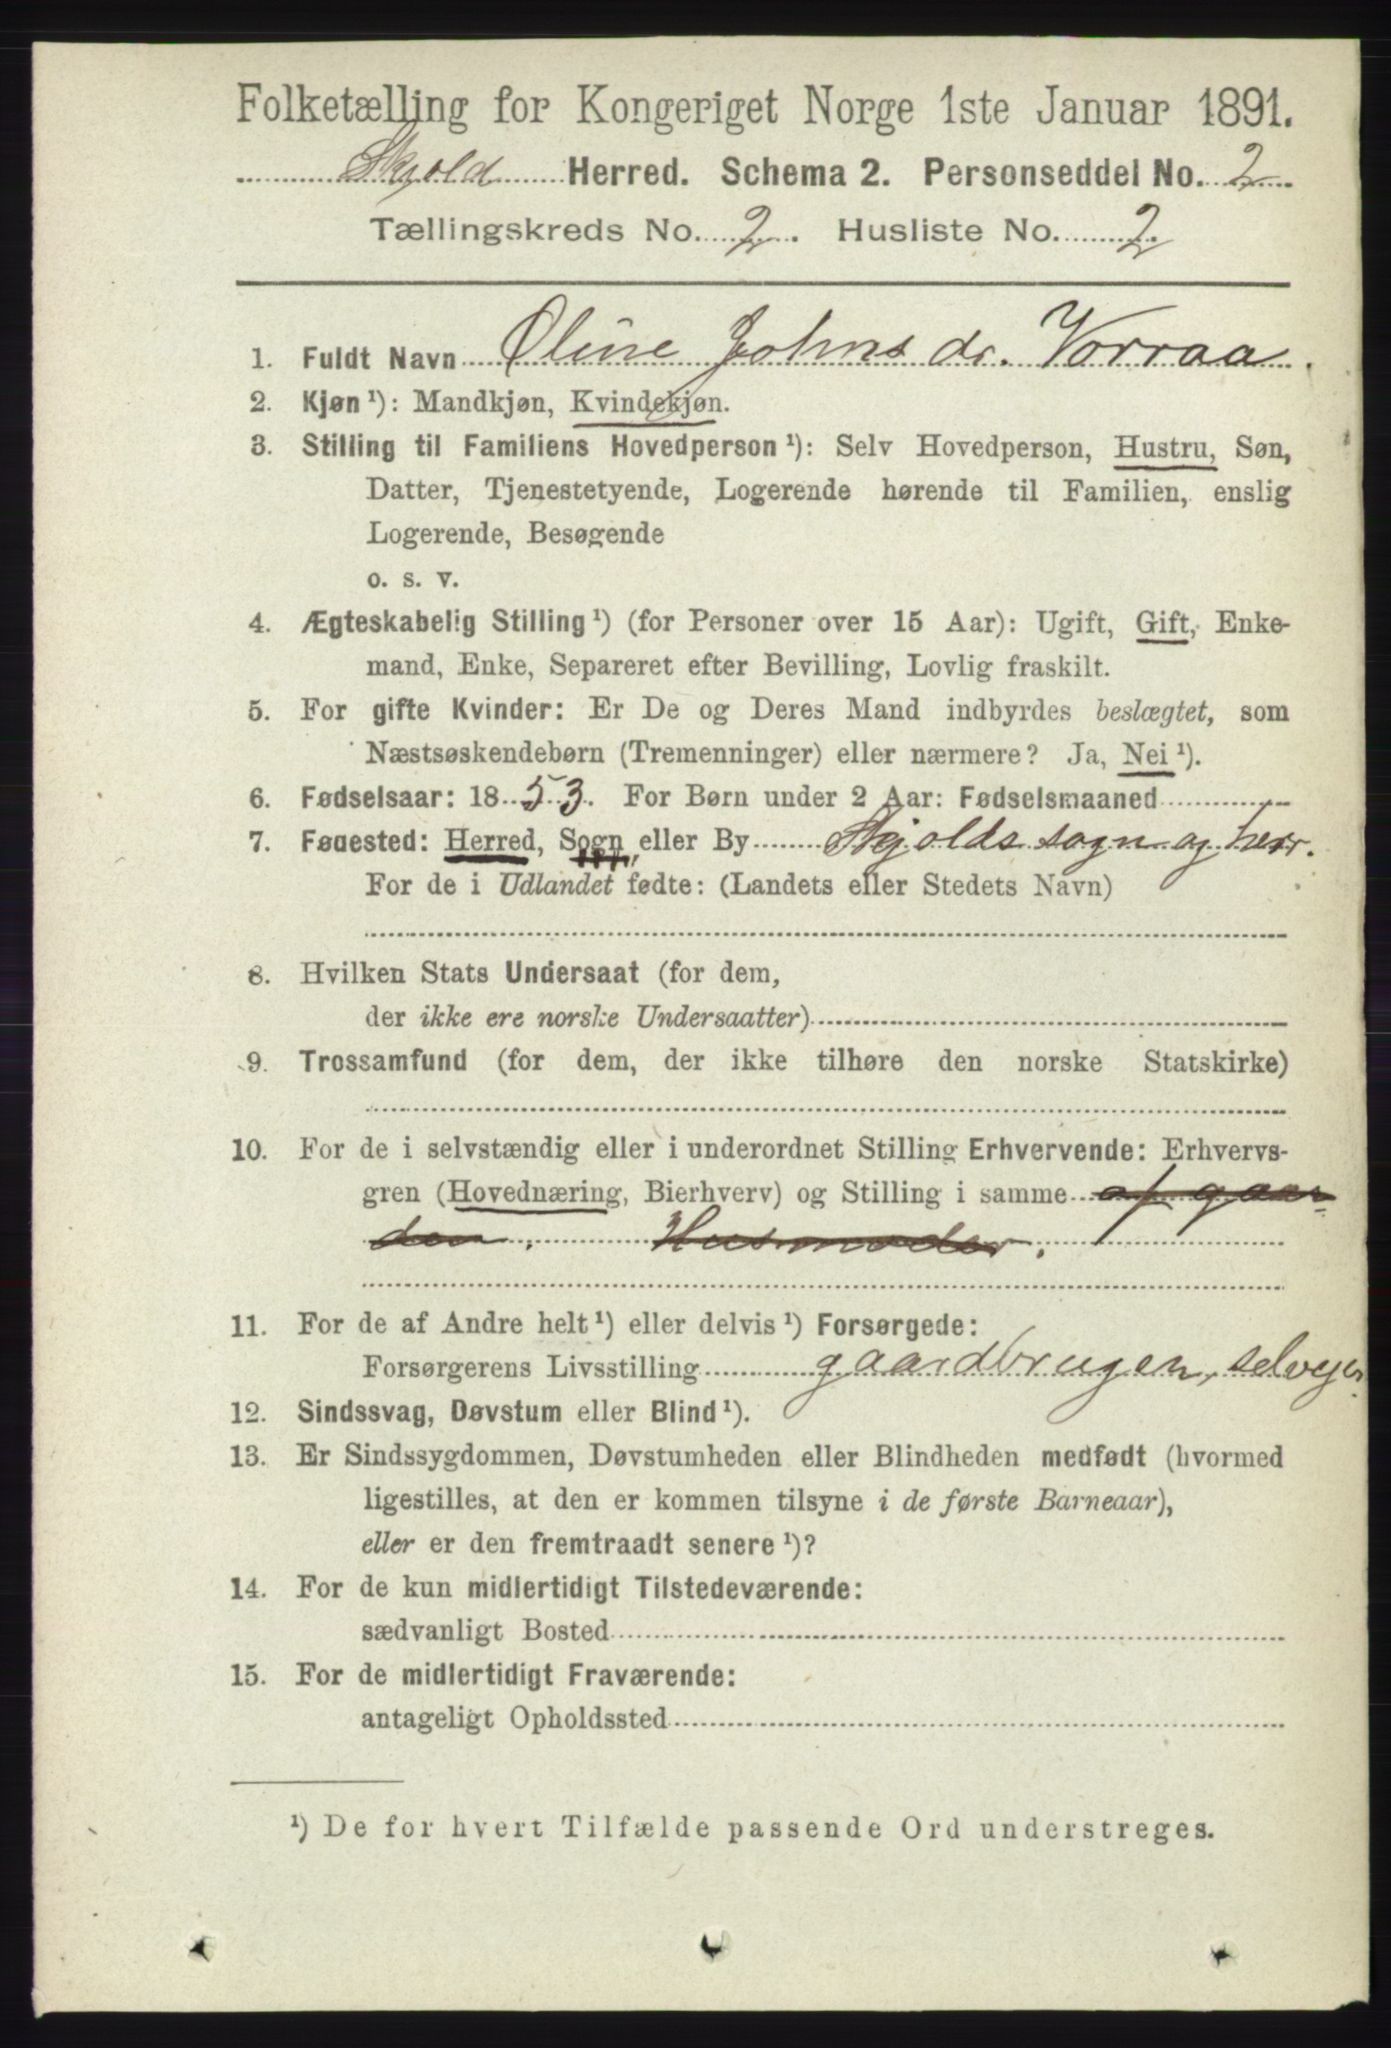 Folketælling for Kongeriget Norge 1ste Januar 1891.
Skjold Herred. Schema 2. Personseddel No. 2
Tællingskreds No. 2. Husliste No. 2.
1. Fuldt Navn Oline Johnsdr. Vorraa.
2. Kjøn ¹): Mandkjøn, Kvindekjøn.
3. Stilling til Familiens Hovedperson ¹): Selv Hovedperson, Hustru, Søn,
Datter, Tjenestetyende, Logerende hørende til Familien, enslig
Logerende, Besøgende
o. s. v.
4. Ægteskabelig Stilling ¹) (for Personer over 15 Aar): Ugift, Gift, Enke-
mand, Enke, Separeret efter Bevilling, Lovlig fraskilt.
5. For gifte Kvinder: Er De og Deres Mand indbyrdes beslægtet, som
Næstsøskendebørn (Tremenninger) eller nærmere? Ja, Nei ¹).
6. Fødselsaar: 1853. For Børn under 2 Aar: Fødselsmaaned
7. Fødested: Herred, Sogn, eller By Skjolds sogn og herr.
For de i Udlandet fødte: (Landets eller Stedets Navn)
8. Hvilken Stats Undersaat (for dem,
der ikke ere norske Undersaatter)
9. Trossamfund (for dem, der ikke tilhøre den norske Statskirke)
10. For de i selvstændig eller i underordnet Stilling Erhvervende: Erhvervs-
gren (Hovednæring, Bierhverv) og Stilling i samme af gaar-
den. Husmoder.
11. For de af Andre helt ¹) eller delvis ¹) Forsørgede:
Forsørgerens Livsstilling gaardbrugen, selvejer
12. Sindssvag, Døvstum eller Blind ¹).
13. Er Sindssygdommen, Døvstumheden eller Blindheden medfødt (hvormed
ligestilles, at den er kommen tilsyne i de første Barneaar),
eller er den fremtraadt senere ¹)?
14. For de kun midlertidigt Tilstedeværende:
sædvanligt Bosted
15. For de midlertidigt Fraværende:
antageligt Opholdssted
¹) De for hvert Tilfælde passende Ord understreges.